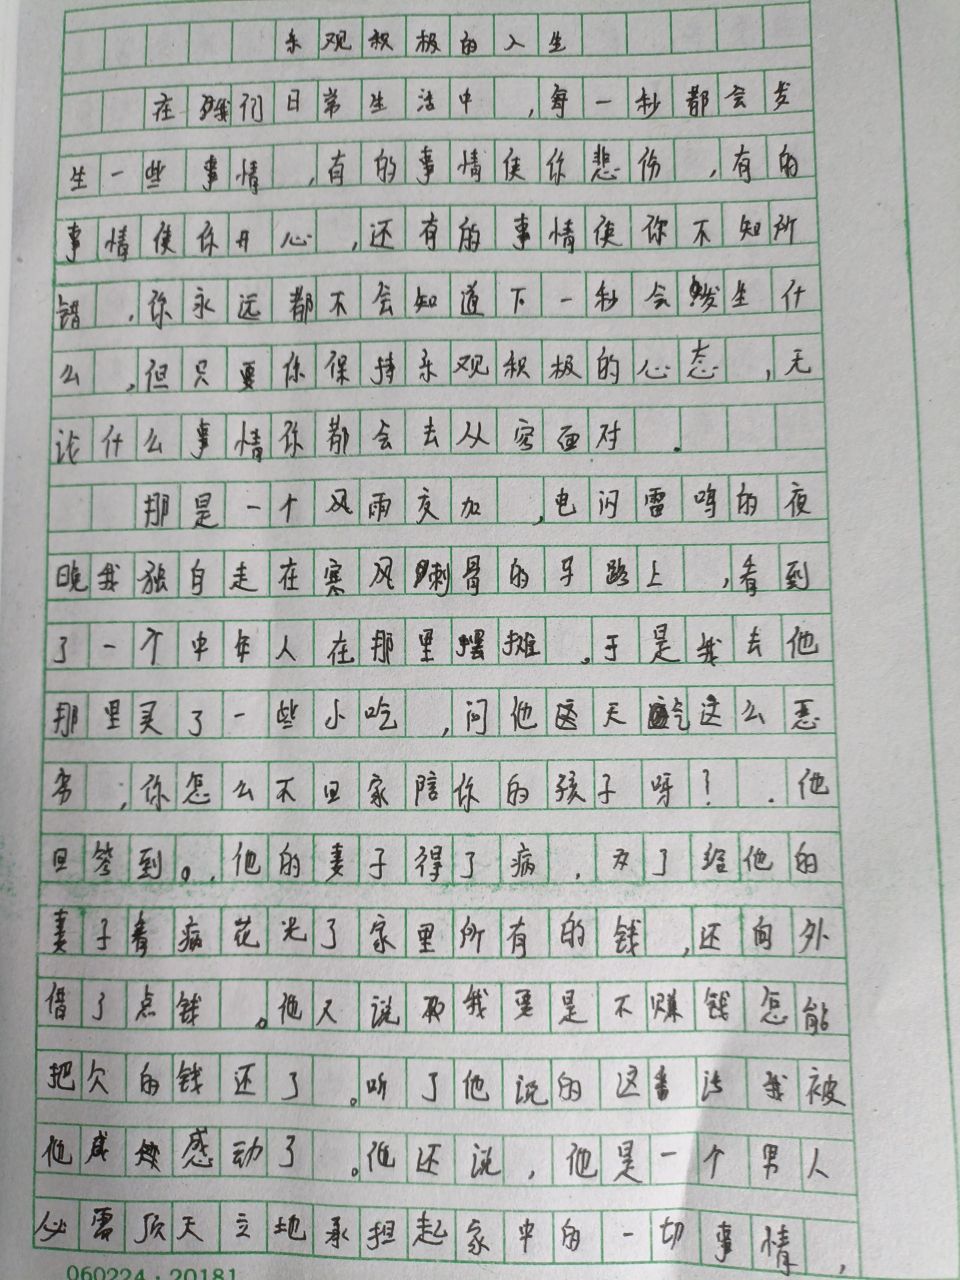 乐观积极的人生
在我们日常生活中,每一秒都会发
生一些事情,有的事情使你悲伤,有的
事情使你开心,还有的事情使你不知所
错,你永远都不会知道下一秒会发生什
么,但只要你保持乐观积极的心态,无
论什么事情你都会去从容面对.
那是一个风雨交加,电闪雷鸣的夜
晚我独自走在寒风刺骨的马路上,看到
了一个中年人在那里摆摊.于是我去他
那里买了一些小吃,问他这天气这么恶
劣,你怎么不回家陪你的孩子呀?.他
回答到。.他的妻子得了病,为了给他的
妻子看病花光了家里所有的钱,还向外
借了点钱。他又说我要是不赚钱怎能
把欠的钱还了。听了他说的这番话我被
他感动了。他还说,他是一个男人
必需顶天立地承担起家中的一切事情,
060224·20181